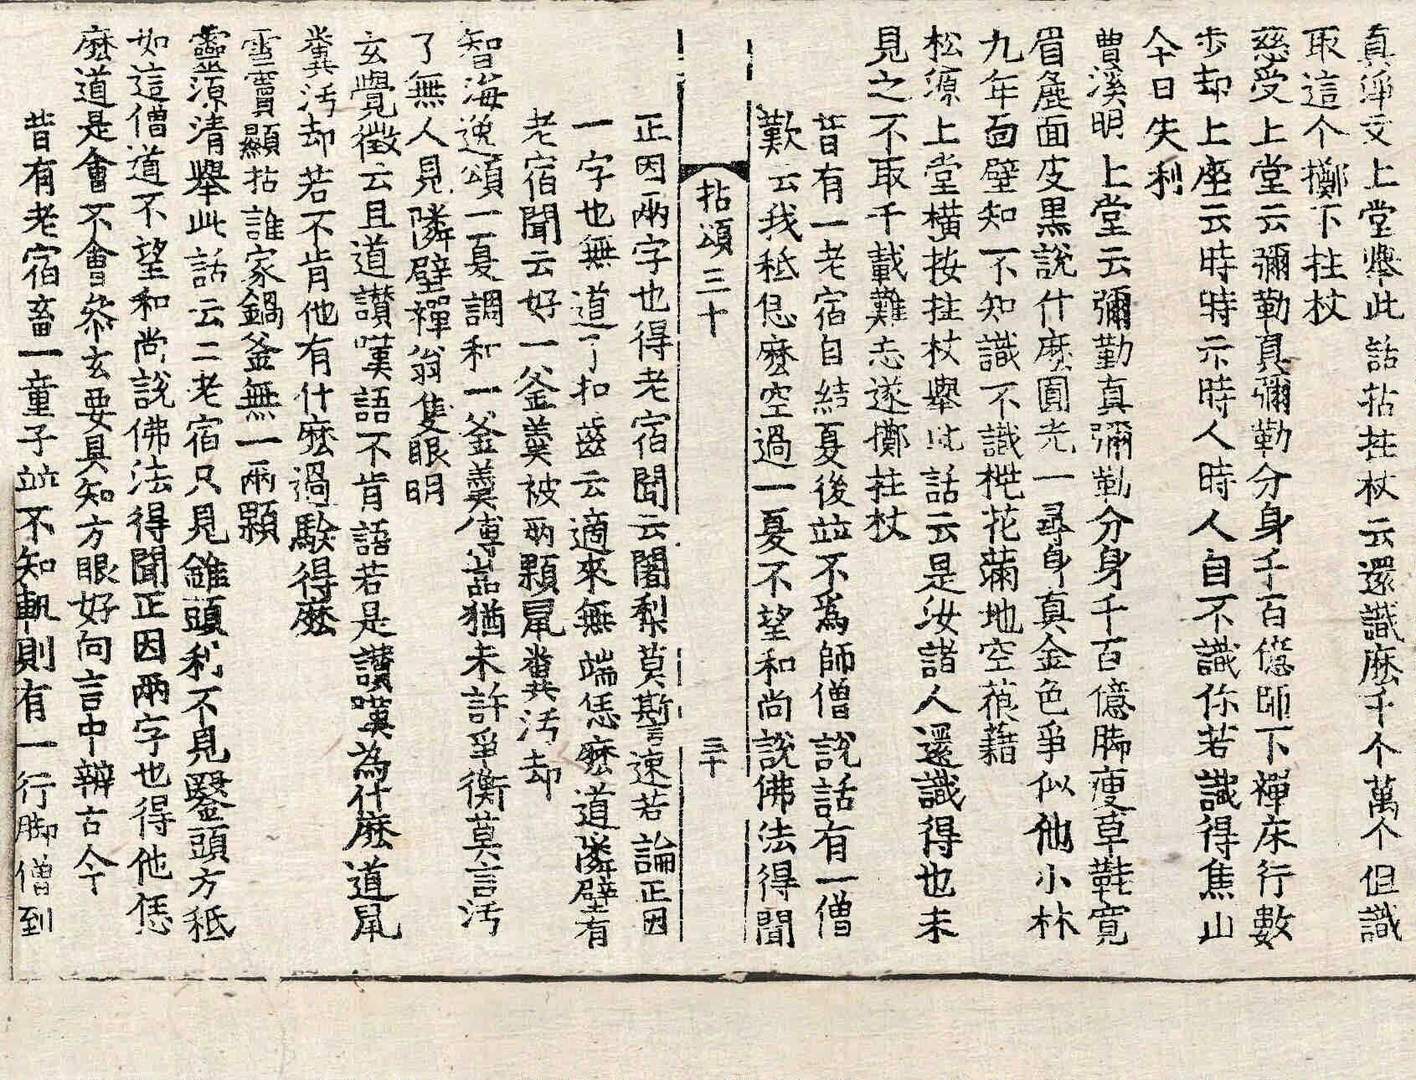 真淨文上堂舉此話拈拄杖云還識麽千个萬个但識
取這个擲下拄杖
慈受上堂云彌勒真彌勒分身千百億師下禪床行數
步却上座云時時示時人時人自不識你若識得焦山
今日失利
曹溪明上堂云彌勒真彌勒分身千百億脚瘦草鞋寬
眉麁面皮黑說什麽圓光一尋身真金色爭似他小林
九年面壁知不知識不識枇花滿地空狼藉
松源上堂橫按拄杖舉此話云是汝諸人還識得也未
見之不取千載難忘遂擲拄杖
昔有一老宿自結夏後竝不爲師僧說話有一僧
歎云我秖恁麽空過一夏不望和尚說佛法得聞
拈頌三十
三十
正因兩字也得老宿聞云闍梨莫斯速若論正因
一字也無道了扣齒云適來無端恁麽道隣壁有
老宿聞云好一釜羹被兩顆鼠糞汚却
智海逸頌一夏調和一釜羹傅嵓猶未許爭衡莫言汚
了無人見隣壁禪翁隻眼明
玄覺徵云且道讃嘆語不肯語若是讃嘆為什麽道鼠
糞汚却若不肯他有什麽過驗得麽
雪竇顯拈誰家鍋釜無一兩顆
靈源清舉此話云二老宿只見錐頭利不見鑿頭方秖
如這僧道不望和尚說佛法得聞正因兩字也得他恁
麽道是會不會叅玄要具知方眼好向言中辨古今
昔有老宿畜一童子竝不知軌則有一行脚僧到